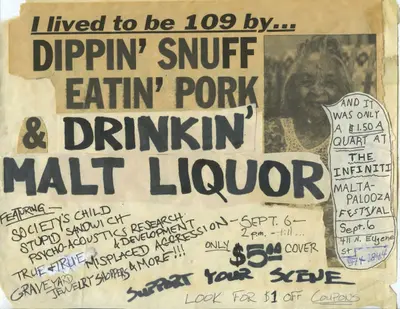 I lived to be 109 by...
DIPPIN' SNUFF
EATIN' PORK
& DRINKIN'
MALT LIQUOR
AND IT
WAS ONLY
A $1.50 A
QUART AT
THE
INFINITI
MALTA-
PALOOZA
FUTSVAL
Sept. 6
411 N. Eugene
St
FEATURING—
SOCIETY'S CHILD
STUPID SANDWICH
PSYCHO-ACOUSTICS RESEARCH
& DEVELOPMENT
TRUE & TRUE, MISPLACED AGGRESSION
GRAVEYARD
JEWELRY SHOPPERS & MORE!!!!
—SEPT. 6—
2 pm. - 'till...
ONLY $5.00 COVER
SUPPORT YOUR SCENE
LOOK FOR $1 OFF COUPONS